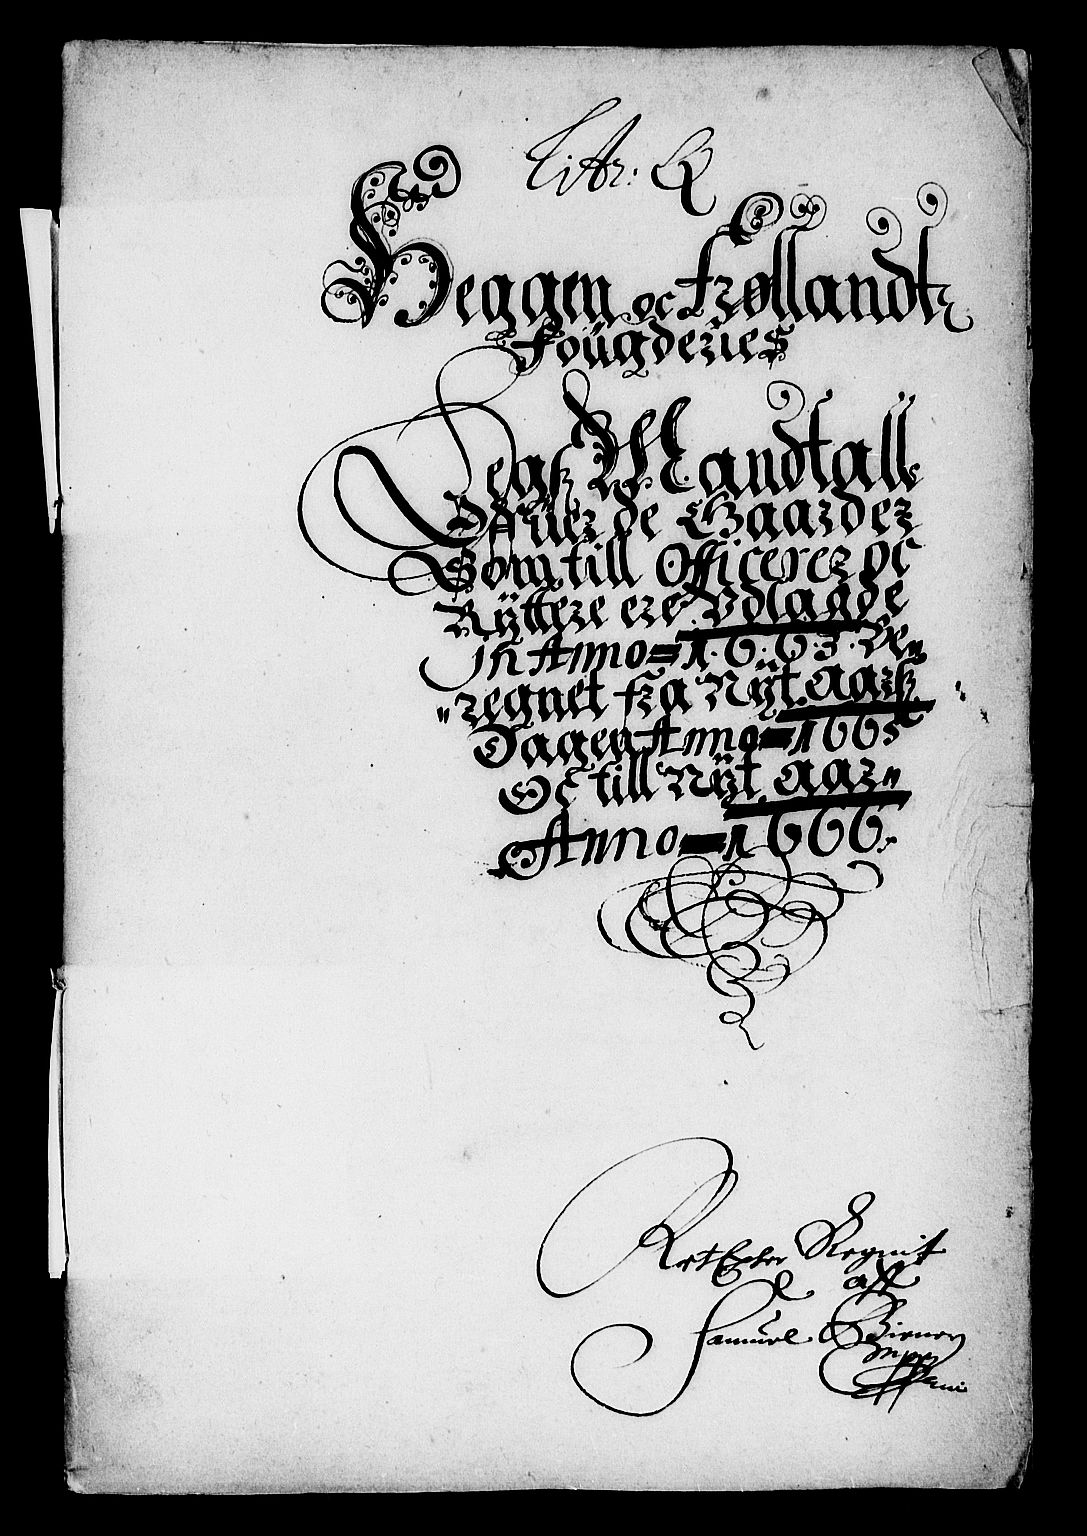 Litr: Q
Heggen oc Frøllandtz
Fougderies
Legs Mandtall
Offuer de Gaarder
Som till Officerer oc
Rÿttere ere Vdlagde
In Anno = 1.6.6.5. be„
„regnet fra Nÿt Aars
Dagen Anno = 1665
Oc till Nÿt Aar„
Anno = 1666.
Ret Epter Regnit
aff
Samuel
mpp